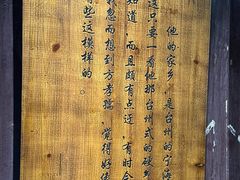 他的家乡，是台州的宁海
这只要一看他那台州式的硬
知道，而且颇有点迂，有时会
我忽而想到方孝孺，觉得好像
有些这模样的